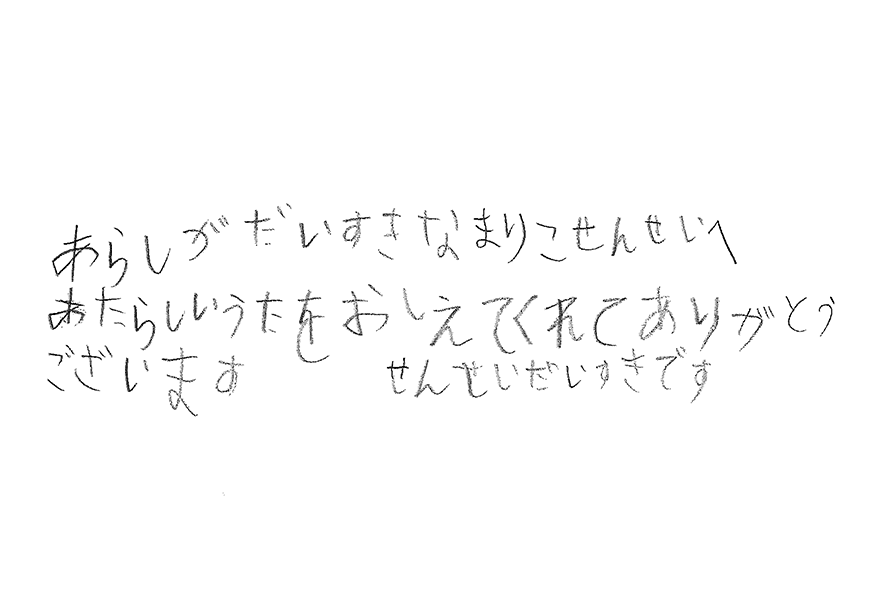 あらしがだいすきなまりこせんせいへ
あたらしいうたをおしえてくれてありがとう
ございます せんせいだいすきです